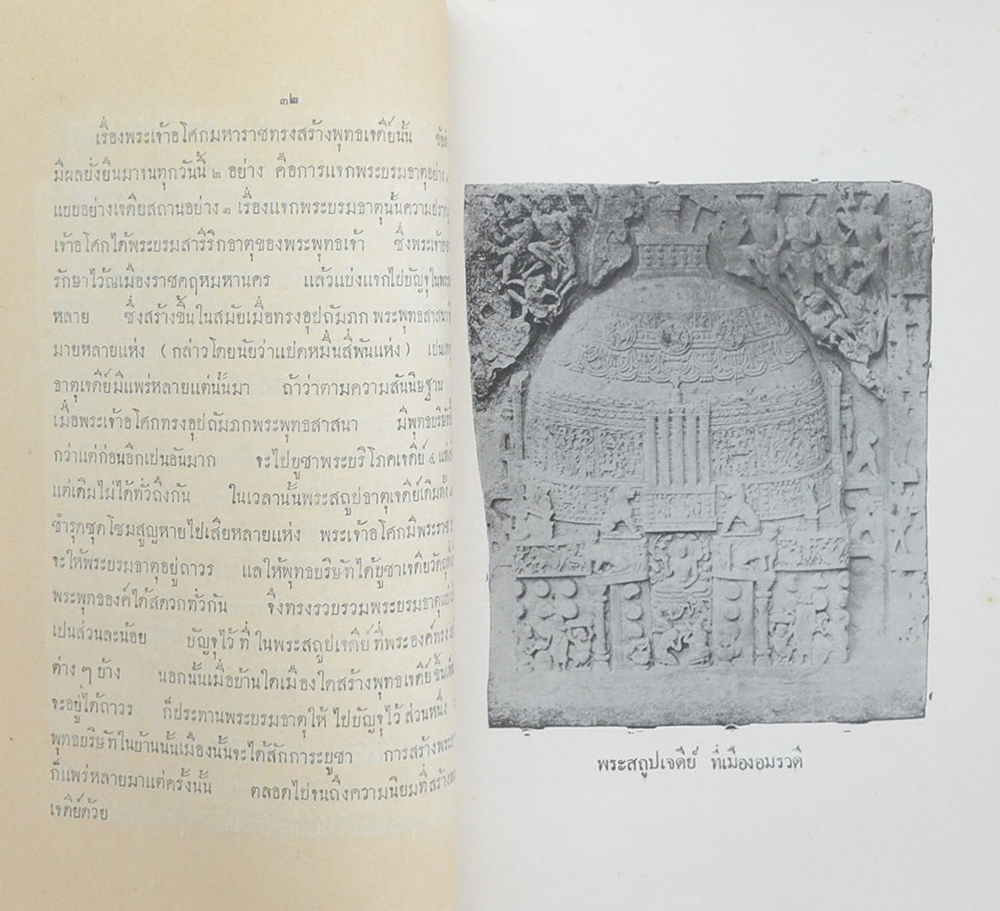 ๓๒
เรื่องพระเจ้าอโศกมหาราชทรงสร้างพุทธเจดีย์นั้น
มีผลยั่งยืนมาจนทุกวันนี้ ๒ อย่าง คือการแจกพระบรมธาตุอย่าง ๑
แบบอย่างเจดียสถานอย่าง ๑ เรื่องแจกพระบรมธาตุนั้นความปรากฏ
เจ้าอโศกได้พระบรมสารีริกธาตุของพระพุทธเจ้า ซึ่งพระเจ้า
รักษาไว้ณเมืองราชคฤหมหานคร แล้วแบ่งแจกไปบัญจุใน
หลาย ซึ่งสร้างขึ้นในสมัยเมื่อทรงอุปถัมภก พระพุทธสาสนา
มายหลายแห่ง (กล่าวโดยนัยว่าแปดหมื่นสี่พันแห่ง) เปน
ธาตุเจดีย์มีแพร่หลายแต่นั้นมา ถ้าว่าตามความสันนิษฐาน
เมื่อพระเจ้าอโศกทรงอุปถัมภกพระพุทธสาสนา มีพุทธบริษัท
กว่าแต่ก่อนอีกเปนอันมาก จะไปบูชาพระบริโภคเจดีย์ ๔ แห่ง
แต่เดิมไม่ได้ทั่วถึงกัน ในเวลานั้นพระสถูปธาตุเจดีย์เดิมทั้ง
ชำรุดซุดโซมสูญหายไปเสียหลายแห่ง พระเจ้าอโศกมีพระราช
จะให้พระบรมธาตุอยู่ถาวร แลให้พุทธบริษัทได้บูชาเจดีย
พระพุทธองค์ได้สดวกทั่วกัน จึงทรงรวบรวมพระบรมธาตุ
เปนส่วนละน้อย บัญจุไว้ ที่ ในพระสถูปเจดีย์ ที่พระองค์ทรง
ต่าง ๆ บ้าง นอกนั้นเมื่อบ้านใดเมืองใดสร้างพุทธเจดีย์ขึ้น
จะอยู่ได้ถาวร ก็ประทานพระบรมธาตุให้ ไปบัญจุไว้ ส่วนหนึ่ง
พุทธบริษัทในบ้านนั้นเมืองนั้นจะได้สักการะบูชา การสร้างพระ
ก็แพร่หลายมาแต่ครั้งนั้น ตลอดไปจนถึงความนิยมที่สร้าง
เจดีย์ด้วย
พระสถูปเจดีย์ ที่เมืองอมรวดี